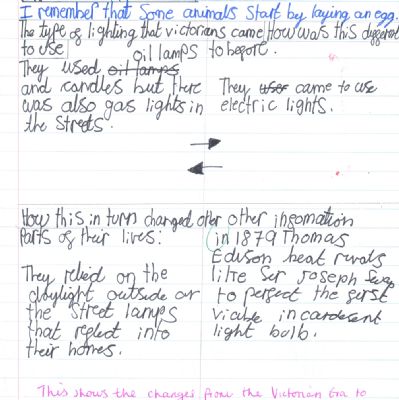 I remember that some animals start by laying an egg.
The type of lighting that victorians came to use
How was this different to before.
oil lamps
They used oil lamps
and candles but there
was also gas lights in
the streets.
They came to use
electric lights.
How this in turn changed other
parts of their lives:
They relied on the
daylight outside or
the street lamps
that reflect into
their homes.
other insomation
in 1879 Thomas
Edison beat rivals
like Ser Joseph Swap
to perfect the first
viable incardesent
light bulb.
This shows the changes from the Victorian Era to